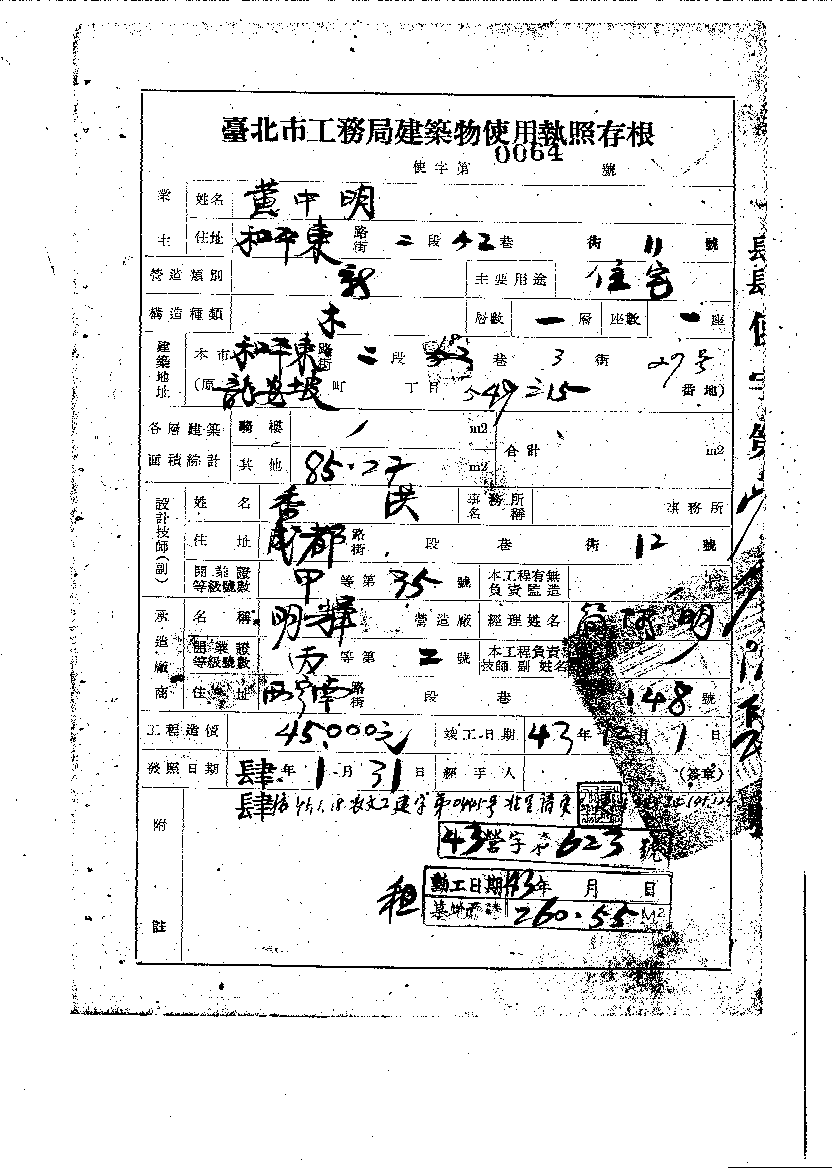 臺北市工務局建築物使用執照存根
使字第 0064 號
業主 姓名 黃中明
住址 和平東 路街 二 段 42 巷 街 11 號
營造類別 新 主要用途 住宅
構造種類 木 層數 一 層 座數 一 座
建築地址 本市 和平東 路街 二 段 巷 3 街 27号
(原 町 丁目 番地)
各層建築面積綜計 騎樓 m2 合計 m2
其他 85.27 m2
設計技師(副) 姓名 洪 事務所名稱 事務所
住址 成都 路街 段 巷 街 12 號
開業證等級號數 甲 等第 35 號 本工程有無負責監造
承造廠商 名稱 明輝 營造廠 經理姓名 阿明
開業證等級號數 丙 等第 二 號 本工程負責技師副姓名
住址 西寧南 路街 段 巷 148 號
工程造價 45,000元 竣工日期 43 年 12 月 1 日
發照日期 肆 年 1 月 31 日 經手人 (簽章)
附註
43營字第623號
動工日期 43年 月 日
租 基地面積 260.55 M2